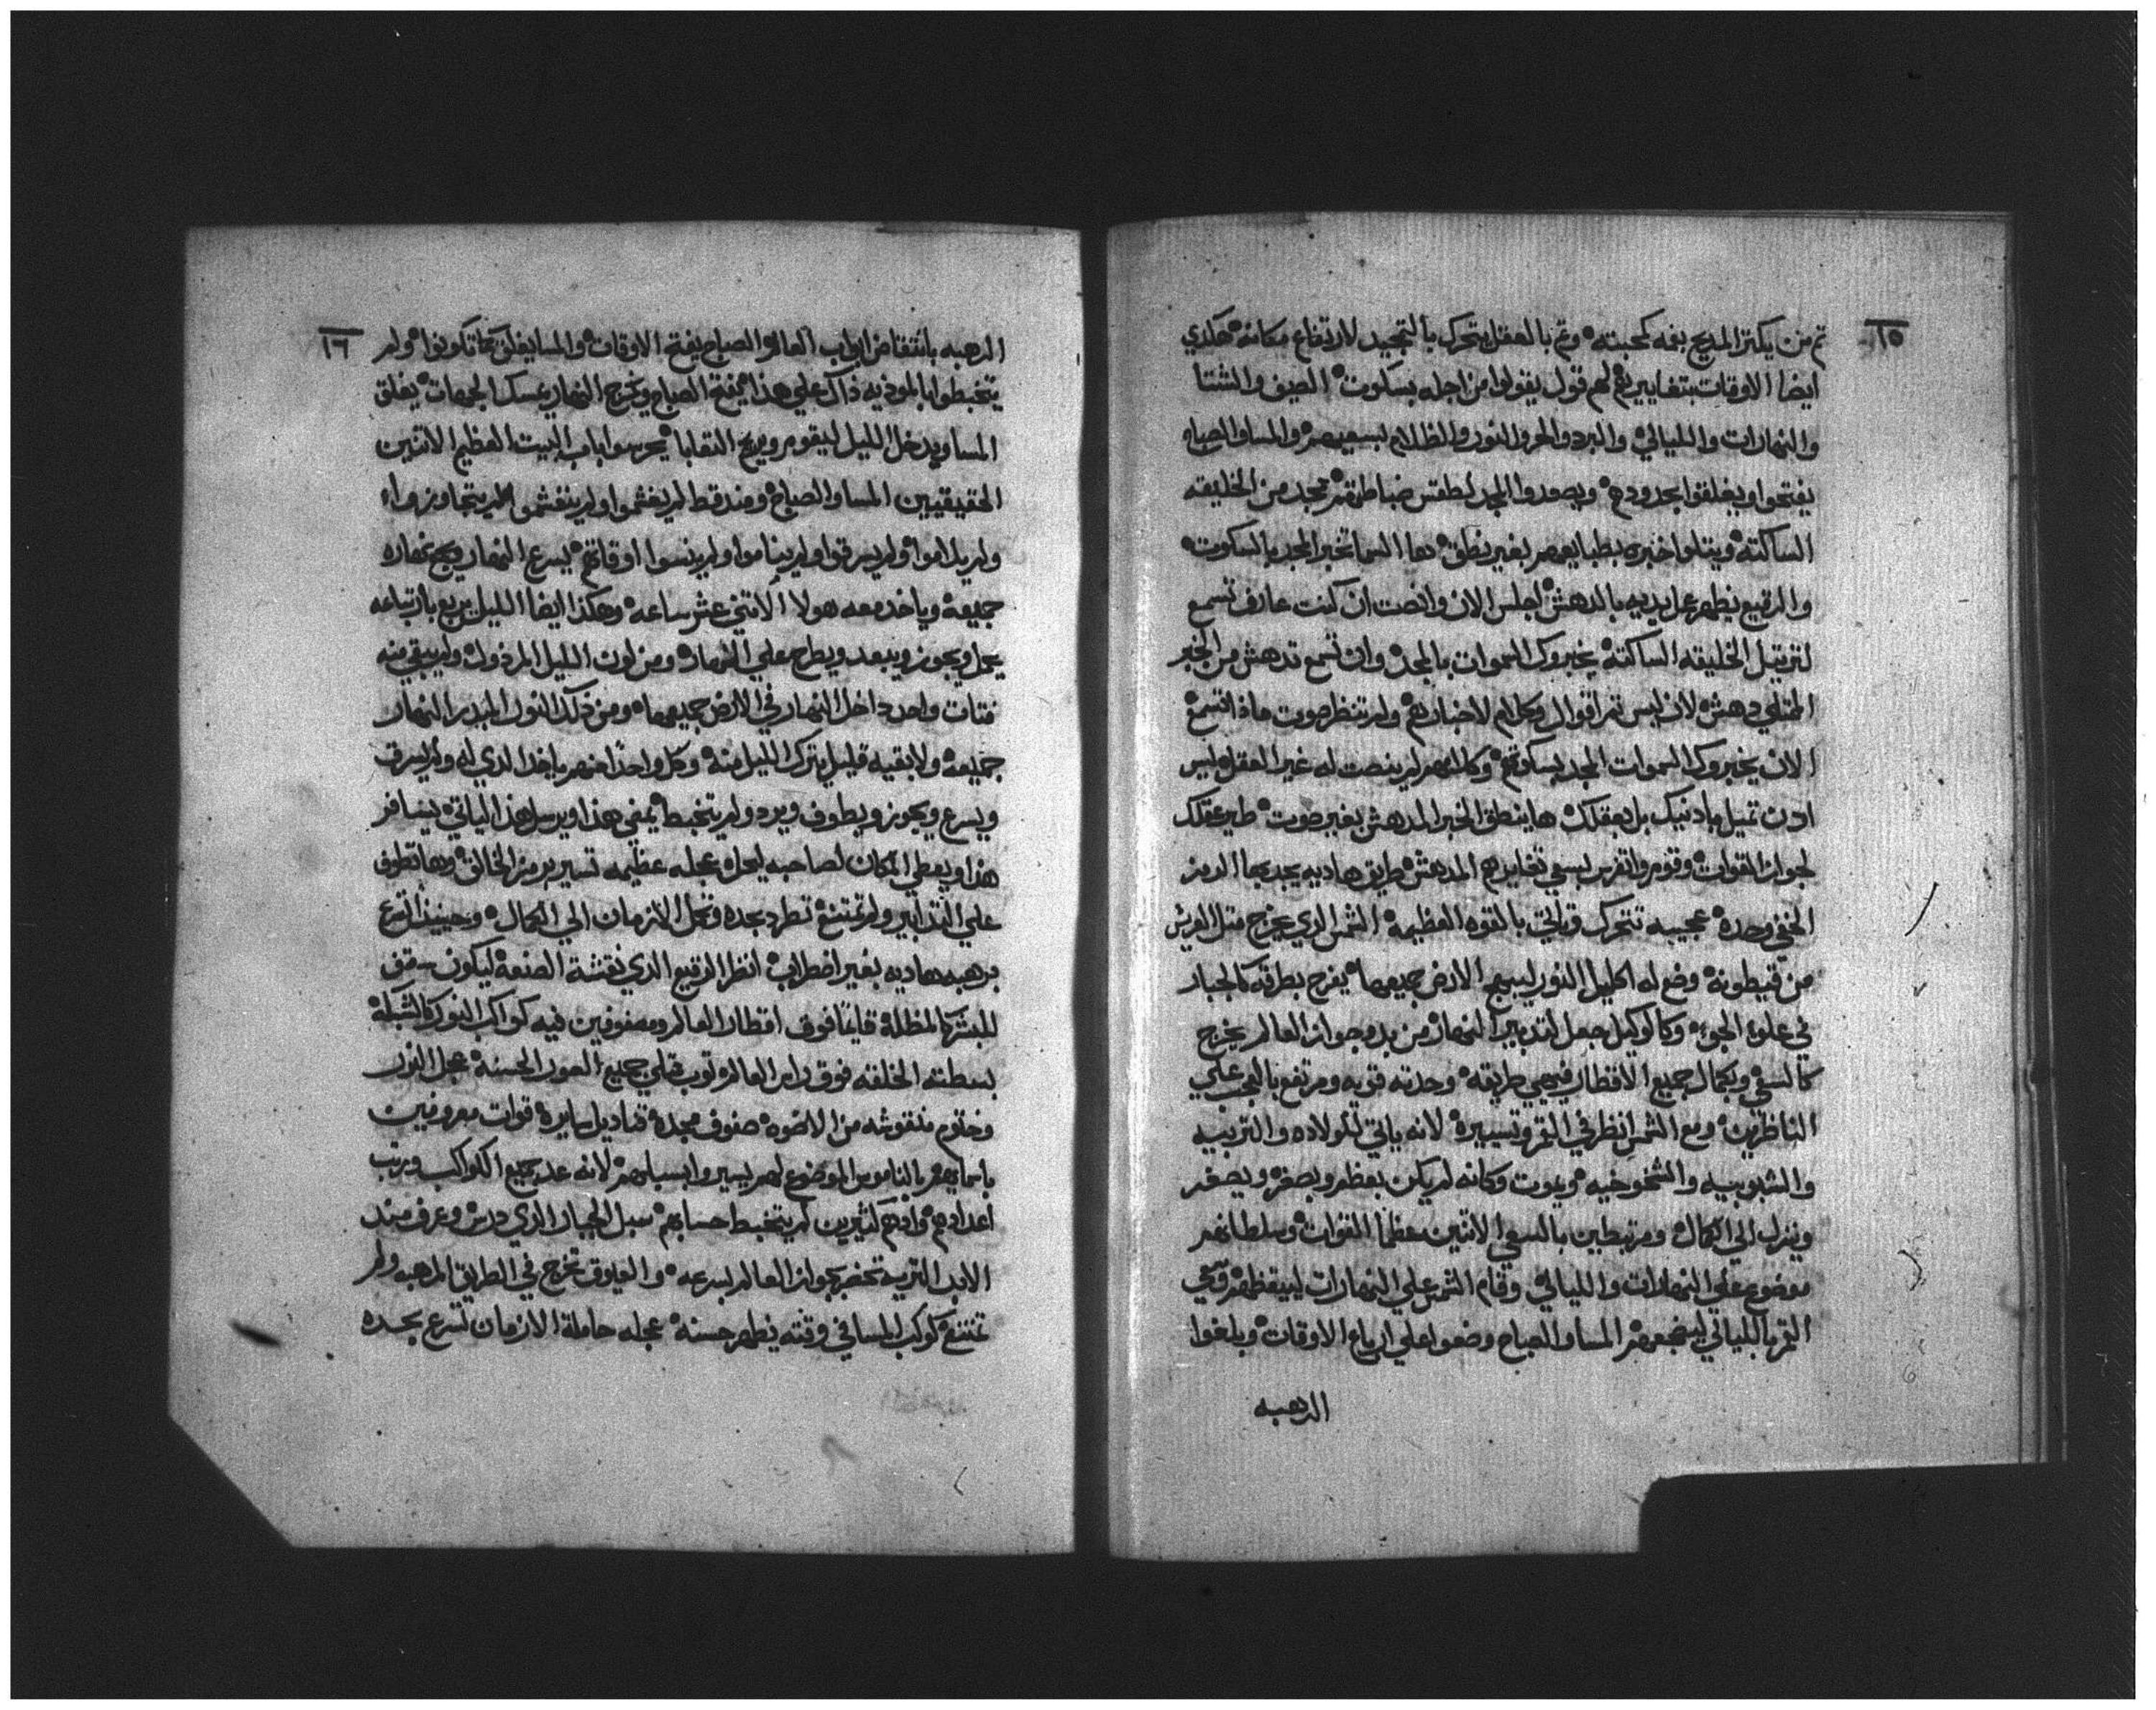 ١٥
تم من يكتر المديح بفه كمحبته وتم بالعقل يتحرك بالتجيد لارتفاع مكانه هكدي
ايضا الاوقات بتغاييرهم لهم قول يقولوا من اجله بسكوت الصيف والشتا
والنهارات والليالي والبرد والحر والنور والظلام لبسعيهم والمسا والصباح
يفتحوا ويغلقوا بحدودهم ويصعدوا المجد لطقس ضباطهم تمجد من الخليقه
الساكته ويتلوا خبره بطبايعهم بغير نطق دها السما تخبر المجد بالسكوت
والرقيع يظهر عمل يديه بالدهش اجلس الان وانصت ان كنت عارف تسمع
لترتيل الخليقه الساكته يخبروك السموات بالمجد وان تسمع تدهش من الخبر
الممتلي دهش لان ليس تم اقوال وكلام لاخبارهم ولم تنظر صوت ماذا تسمع
الان يخبروك السموات المجد بسكوتهم وكلامهم لم ينصت له غير العقل وليس
ادن تميل بادنيك بل بعقلك ها ينطق الخبر المدهش بغير صوت طير عقلك
لجواز القوات وقوم واتفرس بسعي تغايرهم المدهش طريق هاديه يجدبها الرمز
الخفي وحده عجيبه تتحرك وتاتي بالقوه العظيمه الشمس الدي يخرج متل العريس
من قيطونه وضع له اكليل النور ليبهج الارض جميعها يفرح بطرقه كالجبار
في علو الجو وكالوكيل جعل لتدبير النهار من بدو جواز العالم يخرج
كالسعي وبكمال جميع الاقطار فيهي طريقه وحدته قويه ومرتفع بالبهي علي
الناظرين ومع الشمس انظر في القمر وتسييره لانه ياتي للولاده والتربيه
والشبوبيه والشخوخيه ويموت وكانه لم يكن يعظم ويصغر ويصغر
وينزل الي الكمال ومرتبطين بالسعي الاتنين عظما القوات وسلطانهم
موضوع علي النهارات والليالي وقام الشمس علي النهارات ليبيقظهم وفي
القمر بالليالي ليضجعهم المسا والصباح وضعوا علي ارباع الاوقات ويلغوا
الرهبه
١٦
الرهبه باتتقا من ابواب العالم الصباح يفتح الاوقات والمسا يغلق كما تكونوا ولم
يتخبطوا بالموذيه ذاك علي هذا يفتح الصباح ويخرج النهار عسكر الجهات يغلق
المسا ويدخل الليل ليقوم ويريح التقابا يحرسوا باب البيت العظيم الاتنين
الحقيقيين المسا والصباح ومند قط لم يغشموا ولم ينغشموا لم يتجاوزوا
ولم يلاموا ولم يسرقوا ولم يناموا ولم ينسوا اوقاتهم يسرع النهار ويجي بنهاره
جميعه وياخد معه هولا الاتني عشر ساعه وهكذا ايضا الليل يربع بارتباعه
يحل ويجوز ويبعد ويطرح علي النهار ومن لون الليل المرذول ولم يبقي منه
فتات واحد داخل النهار في الارض جميعها ومن ذلك النور المبدر النهار
جميعه ولا بقيه قليل يترك الليل منه وكل واحد منهم ياخد الدي له ولم يسرق
ويسرع ويجوز ويطوف ويرد ولم يتخبط يمضي هذا ويرسل هذا لياتي يسافر
هذا ويعطي المكان لصاحبه ليحل عجله عظيمه تسير برمز الخالق وبها تطوف
علي التدابير ولم تمتنع تطرد بجده وتحل الازمان الي الكمال وحينيذ تسرع
برهبه هاديه بغير اضطراب انظر الرقيع الدي نقشه الصنعه ليكون سقف
للبشر كالمظله قايما فوق اقطار العالم ومصفوفين فيه كواكب النور كالشبكه
بسطته الخلقه فوق راس العالم توب ممتلي جميع الصور الحسنه عجل النور
وختوم منقوشه من الاضوه صفوف مجده قناديل سايره قوات معروفين
باسمايهم بالناموس الموضوع لهم يسيروا بسبلهم لانه عدد جميع الكواكب ورتب
اعدادهم واد هم كثيرين لم يتخبط حسابهم سبل الجبار الدي درس وعرف مند
الابد التريه تحضر بجواز العالم بسرعه والعيوق تخرج في الطريق المرهبه ولم
تمتنع كوكب المسا في وقته يظهر حسنه عجله حاملة الازمان تسرع بجده